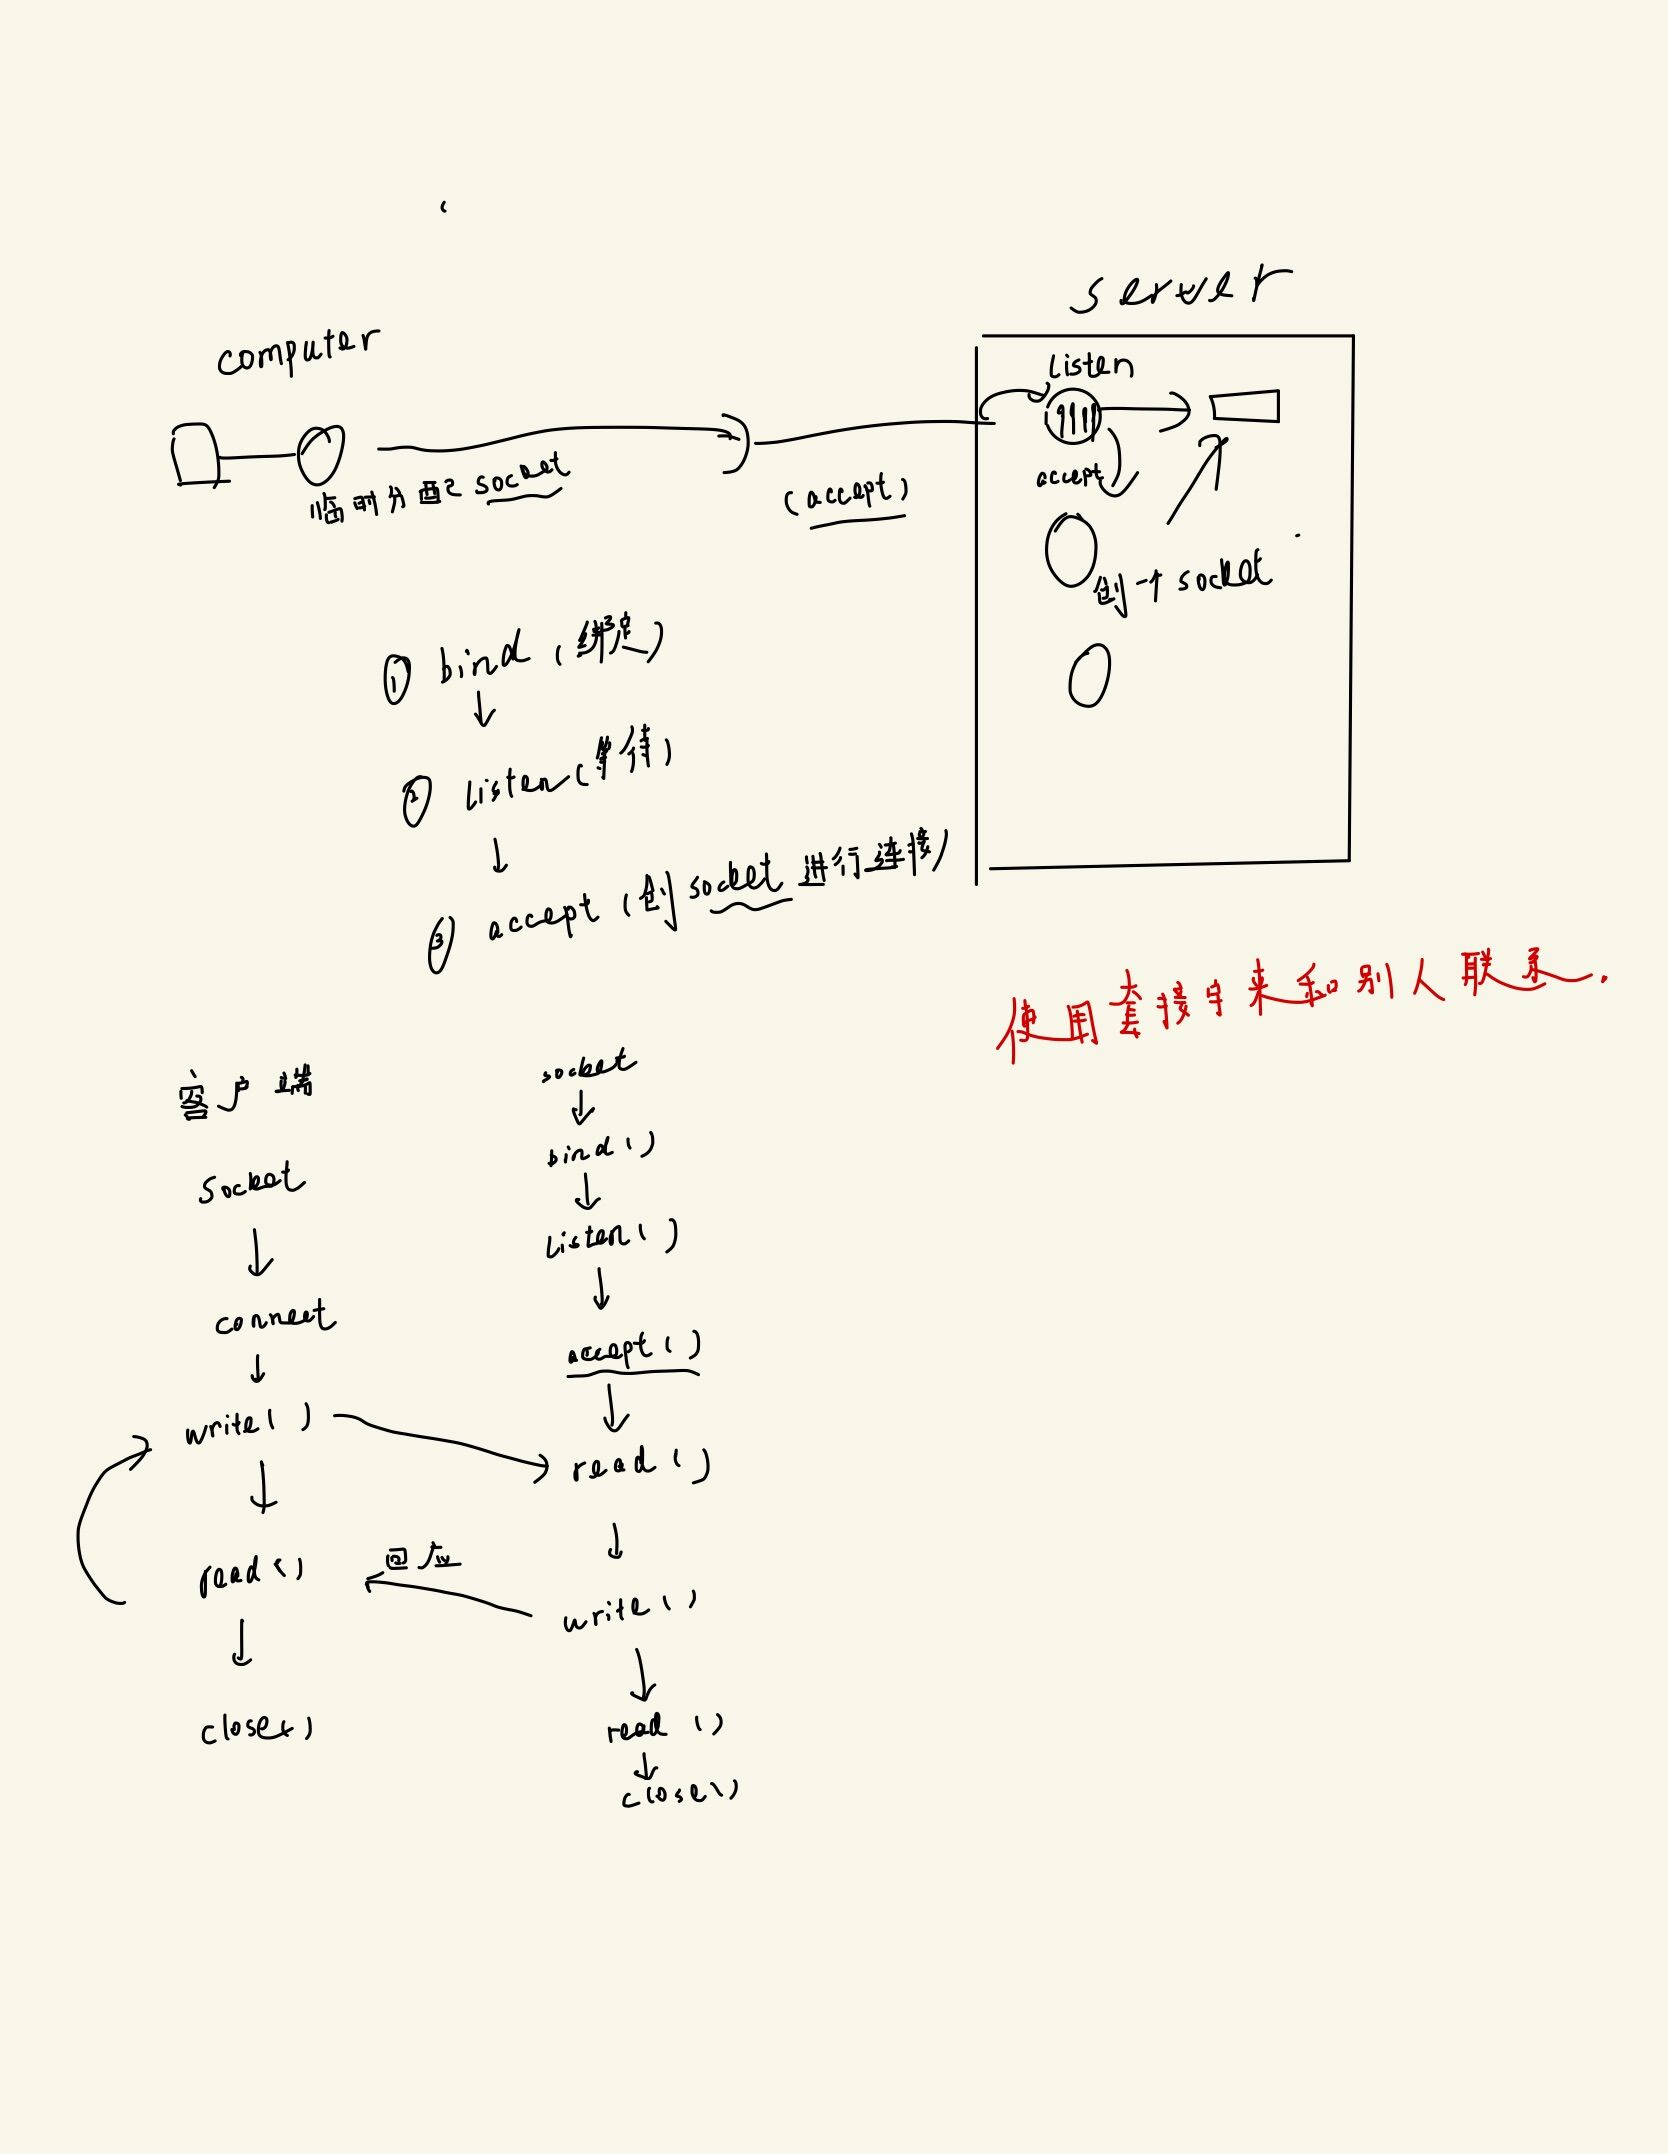 server
computer
Listen
9999
accept
临时分配 socket
(accept)
创一个 socket
① bind (绑定)
② Listen (等待)
③ accept (创 socket 进行连接)
使用套接字来和别人联系.
客户端
socket
connect
write()
read()
close()
socket
bind()
Listen()
accept()
read()
回应
write()
read()
close()